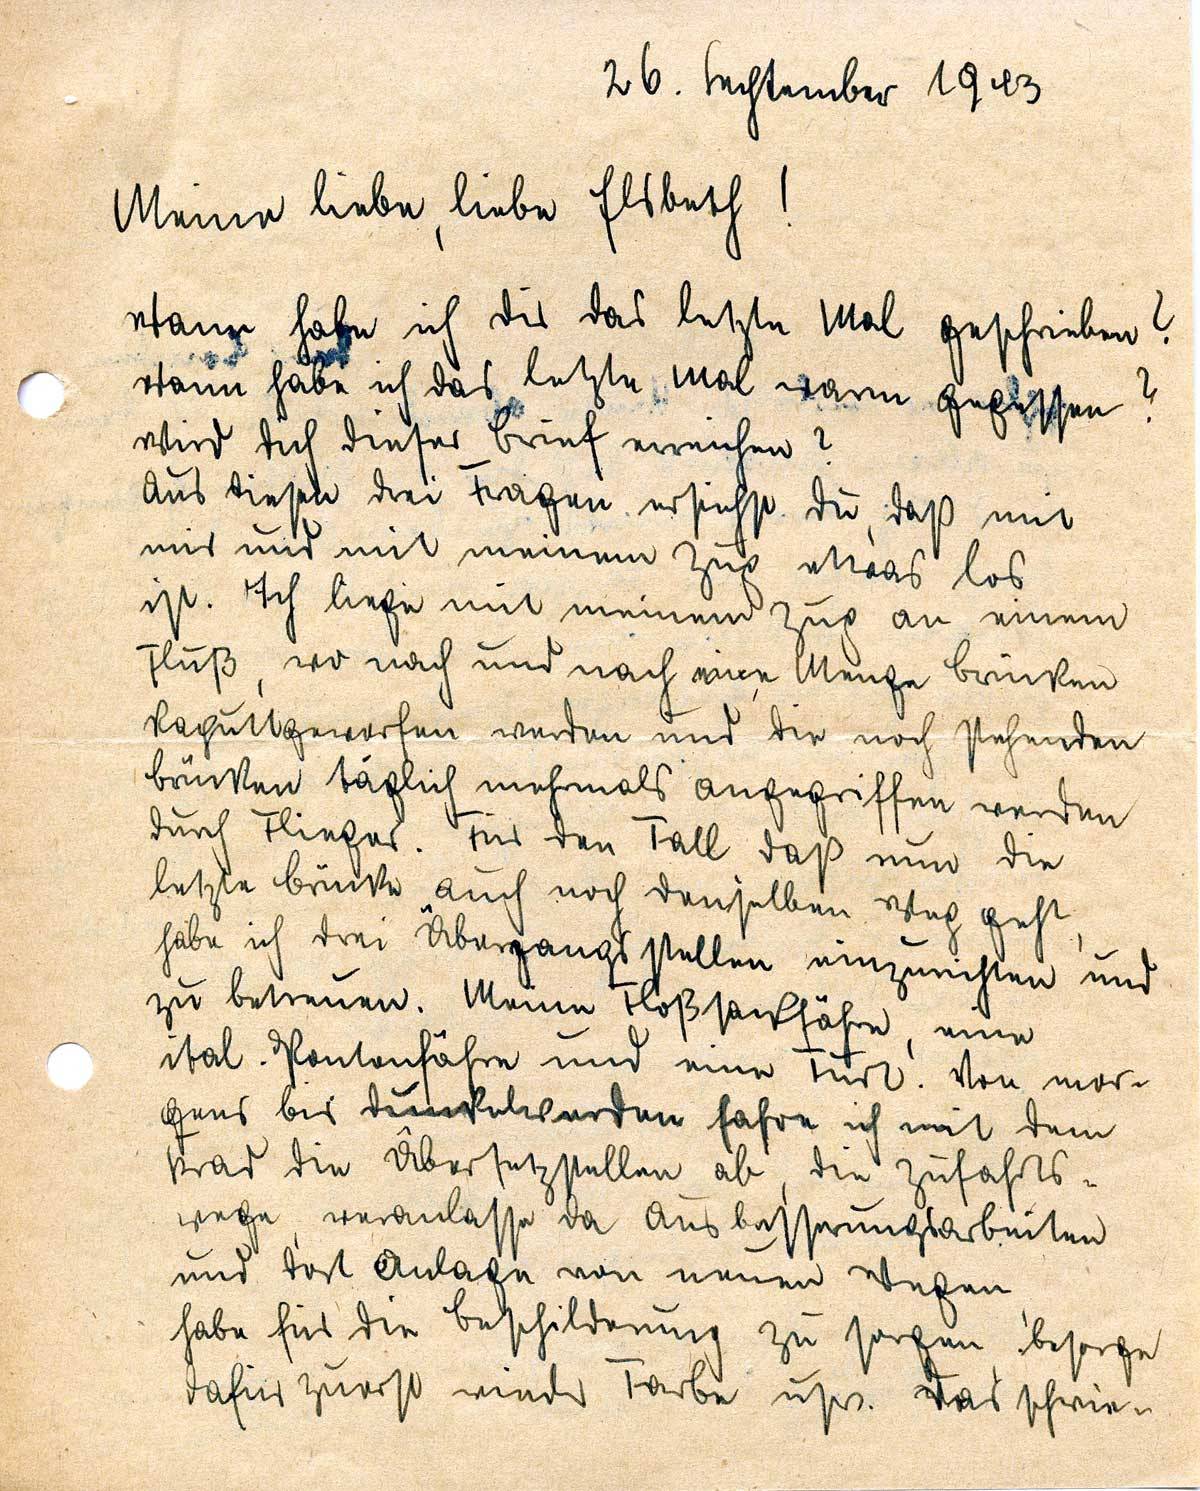 26. September 1943
Meine liebe, liebe Elsbeth!
Wann habe ich dir das letzte Mal geschrieben?
Wann habe ich das letzte Mal warm gegessen?
Wird dich dieser Brief erreichen?
Aus diesen drei Fragen ersiehst du, daß mit
mir und mit meinem Zug etwas los
ist. Ich liege mit meinem Zug an einem
Fluß, wo nach und nach eine Menge Brücken
kaputtgeworfen werden und die noch stehenden
Brücken täglich mehrmals angegriffen werden
durch Flieger. Für den Fall daß nun die
letzte Brücke auch noch denselben Weg geht,
habe ich drei Übergangsstellen einzurichten und
zu betreuen. Meine Floßsackfähre, eine
ital. Pontonfähre und eine Furt. Von mor-
gens bis dunkelwerden fahre ich mit dem
Krad die Übersetzstellen ab, die Zufahrts-
wege, veranlasse da Ausbesserungsarbeiten
und dort Anlage von neuen Wegen,
habe für die Beschilderung zu sorgen, besorge
dafür zuerst wieder Farbe usw. Das schwie-